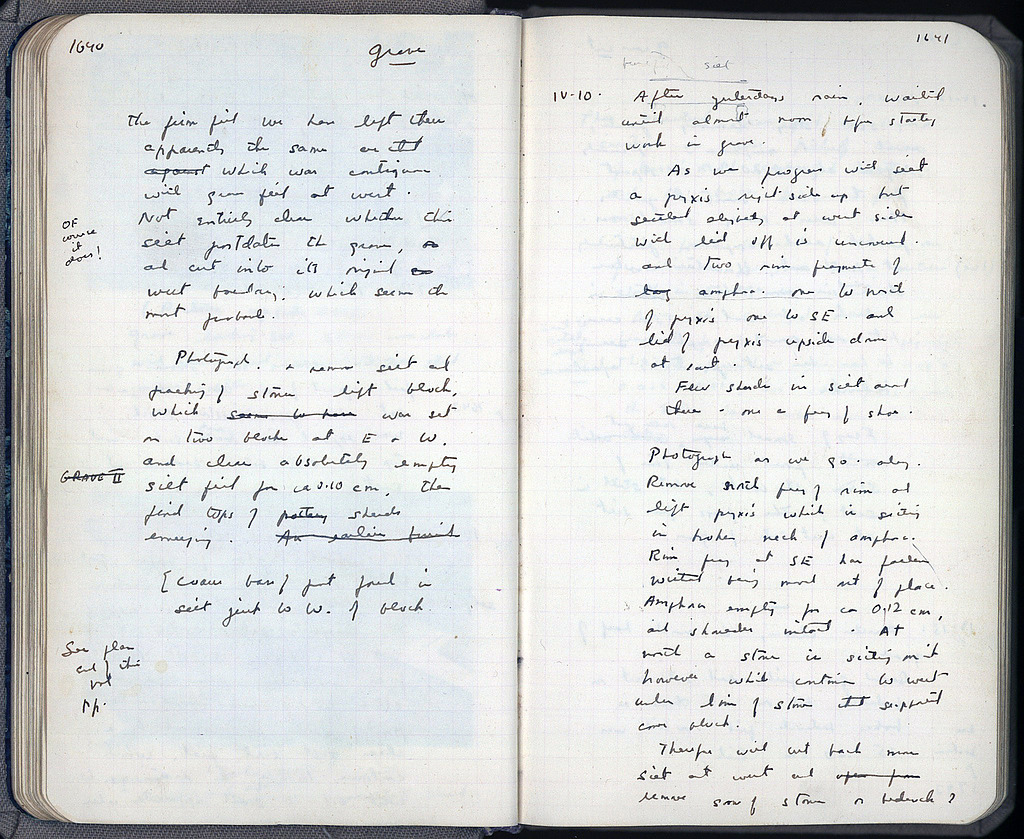 1640
grave
the firm fill we have left there
apparently the same as that
against which was contiguous
with grave fill at west.
Not entirely clear whether this
silt postdates the grave,
and cut into its original
west boundary; which seems the
most probable.
OF
course
it
does!
Photograph. + remove silt and
packing of stones, lift block,
which seems to have was set
on two blocks at E + W.
and clear absolutely empty
GRAVE II
silt fill for ca 0.10 cm, then
find tops of pottery sherds
emerging. An earlier burial
[Coarse base of pot found in
silt just to W. of block
See plan
end of this
not
pp.
1641
silt
IV-10. After yesterdays rain, waited
until almost noon before starting
work in grave.
As we progress with silt
a pyxis right side up but
settled slightly at west side
with lid off is uncovered.
and two rim fragments of
amphora. one to north
of pyxis one to SE. and
lid of pyxis upside down
at east.
Few sherds in silt and
there - one a frag of
Photograph as we go along.
Remove north frag of rim and
lift pyxis which is sitting
in broken neck of amphora.
Rim frag at SE has fallen
being moved out of place.
Amphora empty for ca 0.12 cm,
and shoulder intact. At
north a stone is sitting on it
however which continues to west
under line of stones that support
cover block.
Therefore will cut back more
silt at west and open from
remove some of stones or bedrock?